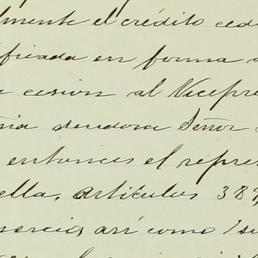 lmente el crédito ced
ificada en forma a
e cesion al Vicepre
ñia deudora Señor
entonces el repres
ella, artículos 389,
mercio, así como